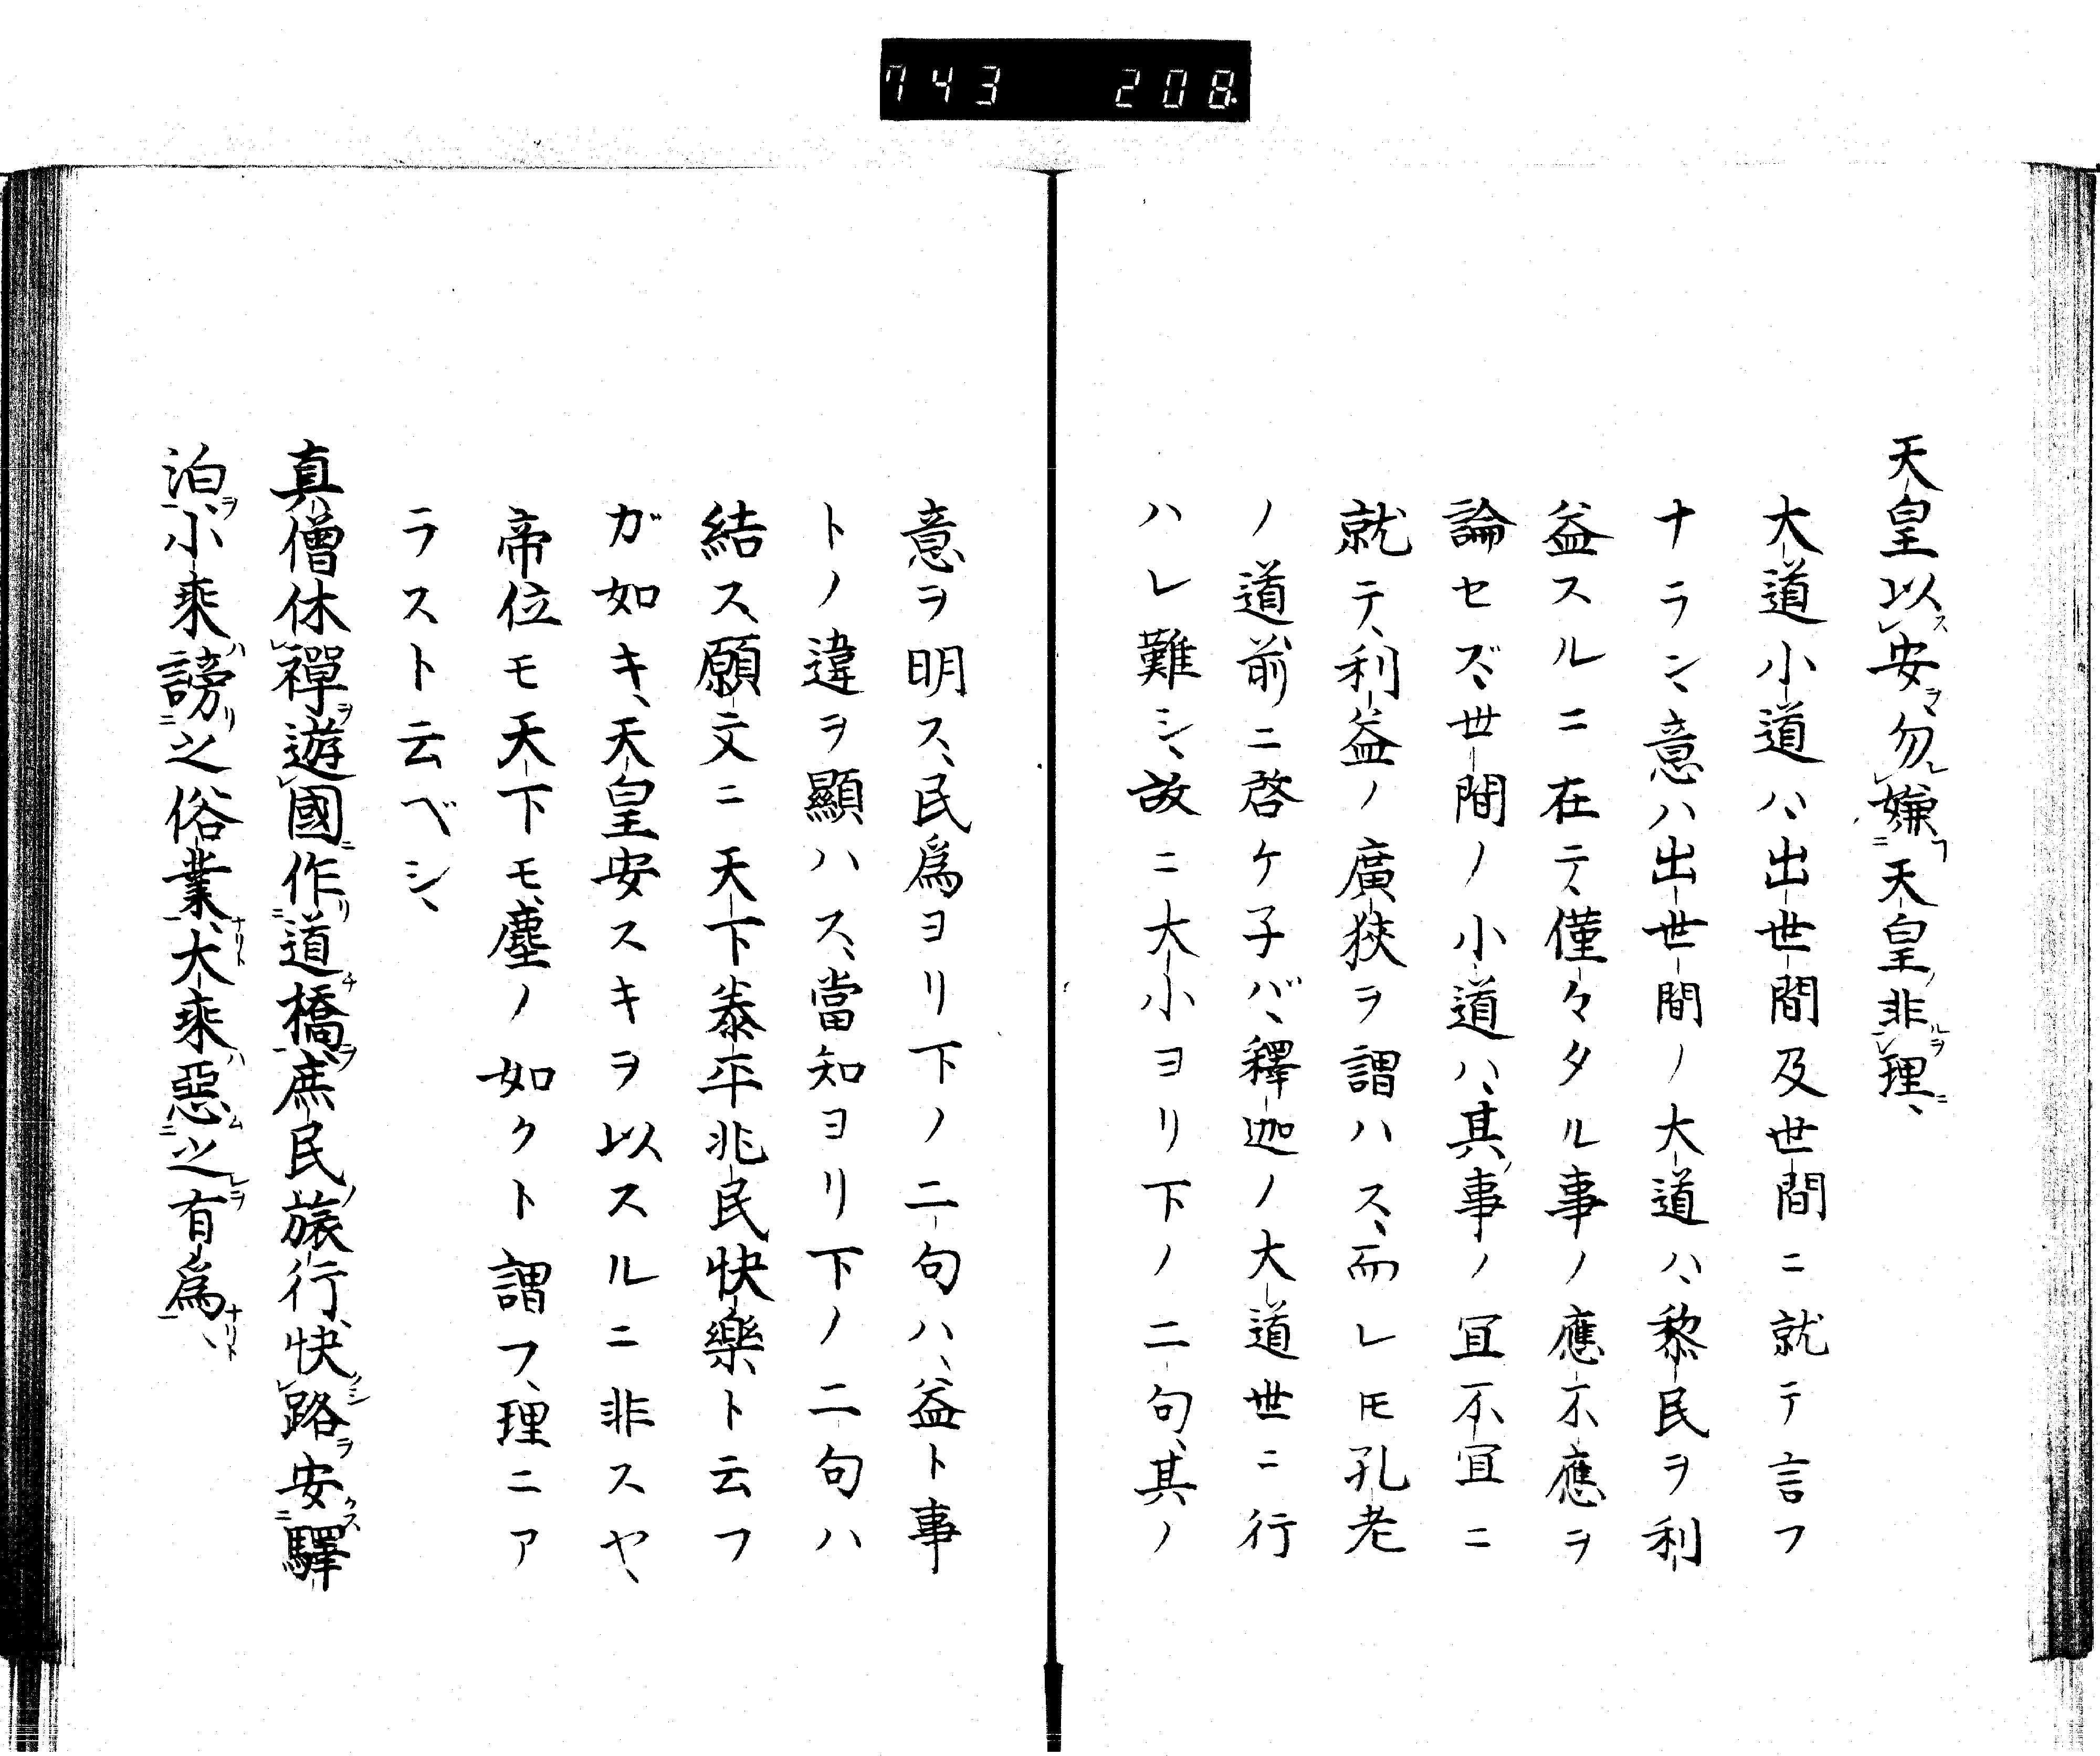 743 208
天皇以安勿嫌天皇非理、
大道小道ハ、出世間及世間ニ就テ言フ
ナラン、意ハ出世間ノ大道ハ、黎民ヲ利
益スルニ在テ、僅々タル事ノ應不應ヲ
論セズ、世間ノ小道ハ、其事ノ宜不宜ニ
就テ、利益ノ廣狹ヲ謂ハス、而レ𪜈孔老
ノ道前ニ啓ケ子バ、釋迦ノ大道世ニ行
ハレ難シ、故ニ大小ヨリ下ノ二句、其ノ
意ヲ明ス、民為ヨリ下ノ二句ハ、益ト事
トノ違ヲ顯ハス、當知ヨリ下ノ二句ハ
結ス、願文ニ天下泰平兆民快樂ト云フ
ガ如キ、天皇安スキヲ以スルニ非スヤ、
帝位モ天下モ、塵ノ如クト謂フ、理ニア
ラスト云ベシ、
真僧休禪遊國作道橋、庶民旅行、快路安驛
泊、小乘謗之俗業、大乘惡之有為、